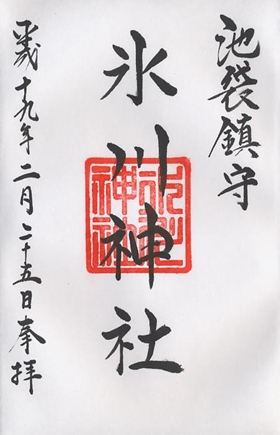 池袋鎮守
氷川神社
平成十九年二月二十五日奉拝
氷川神社